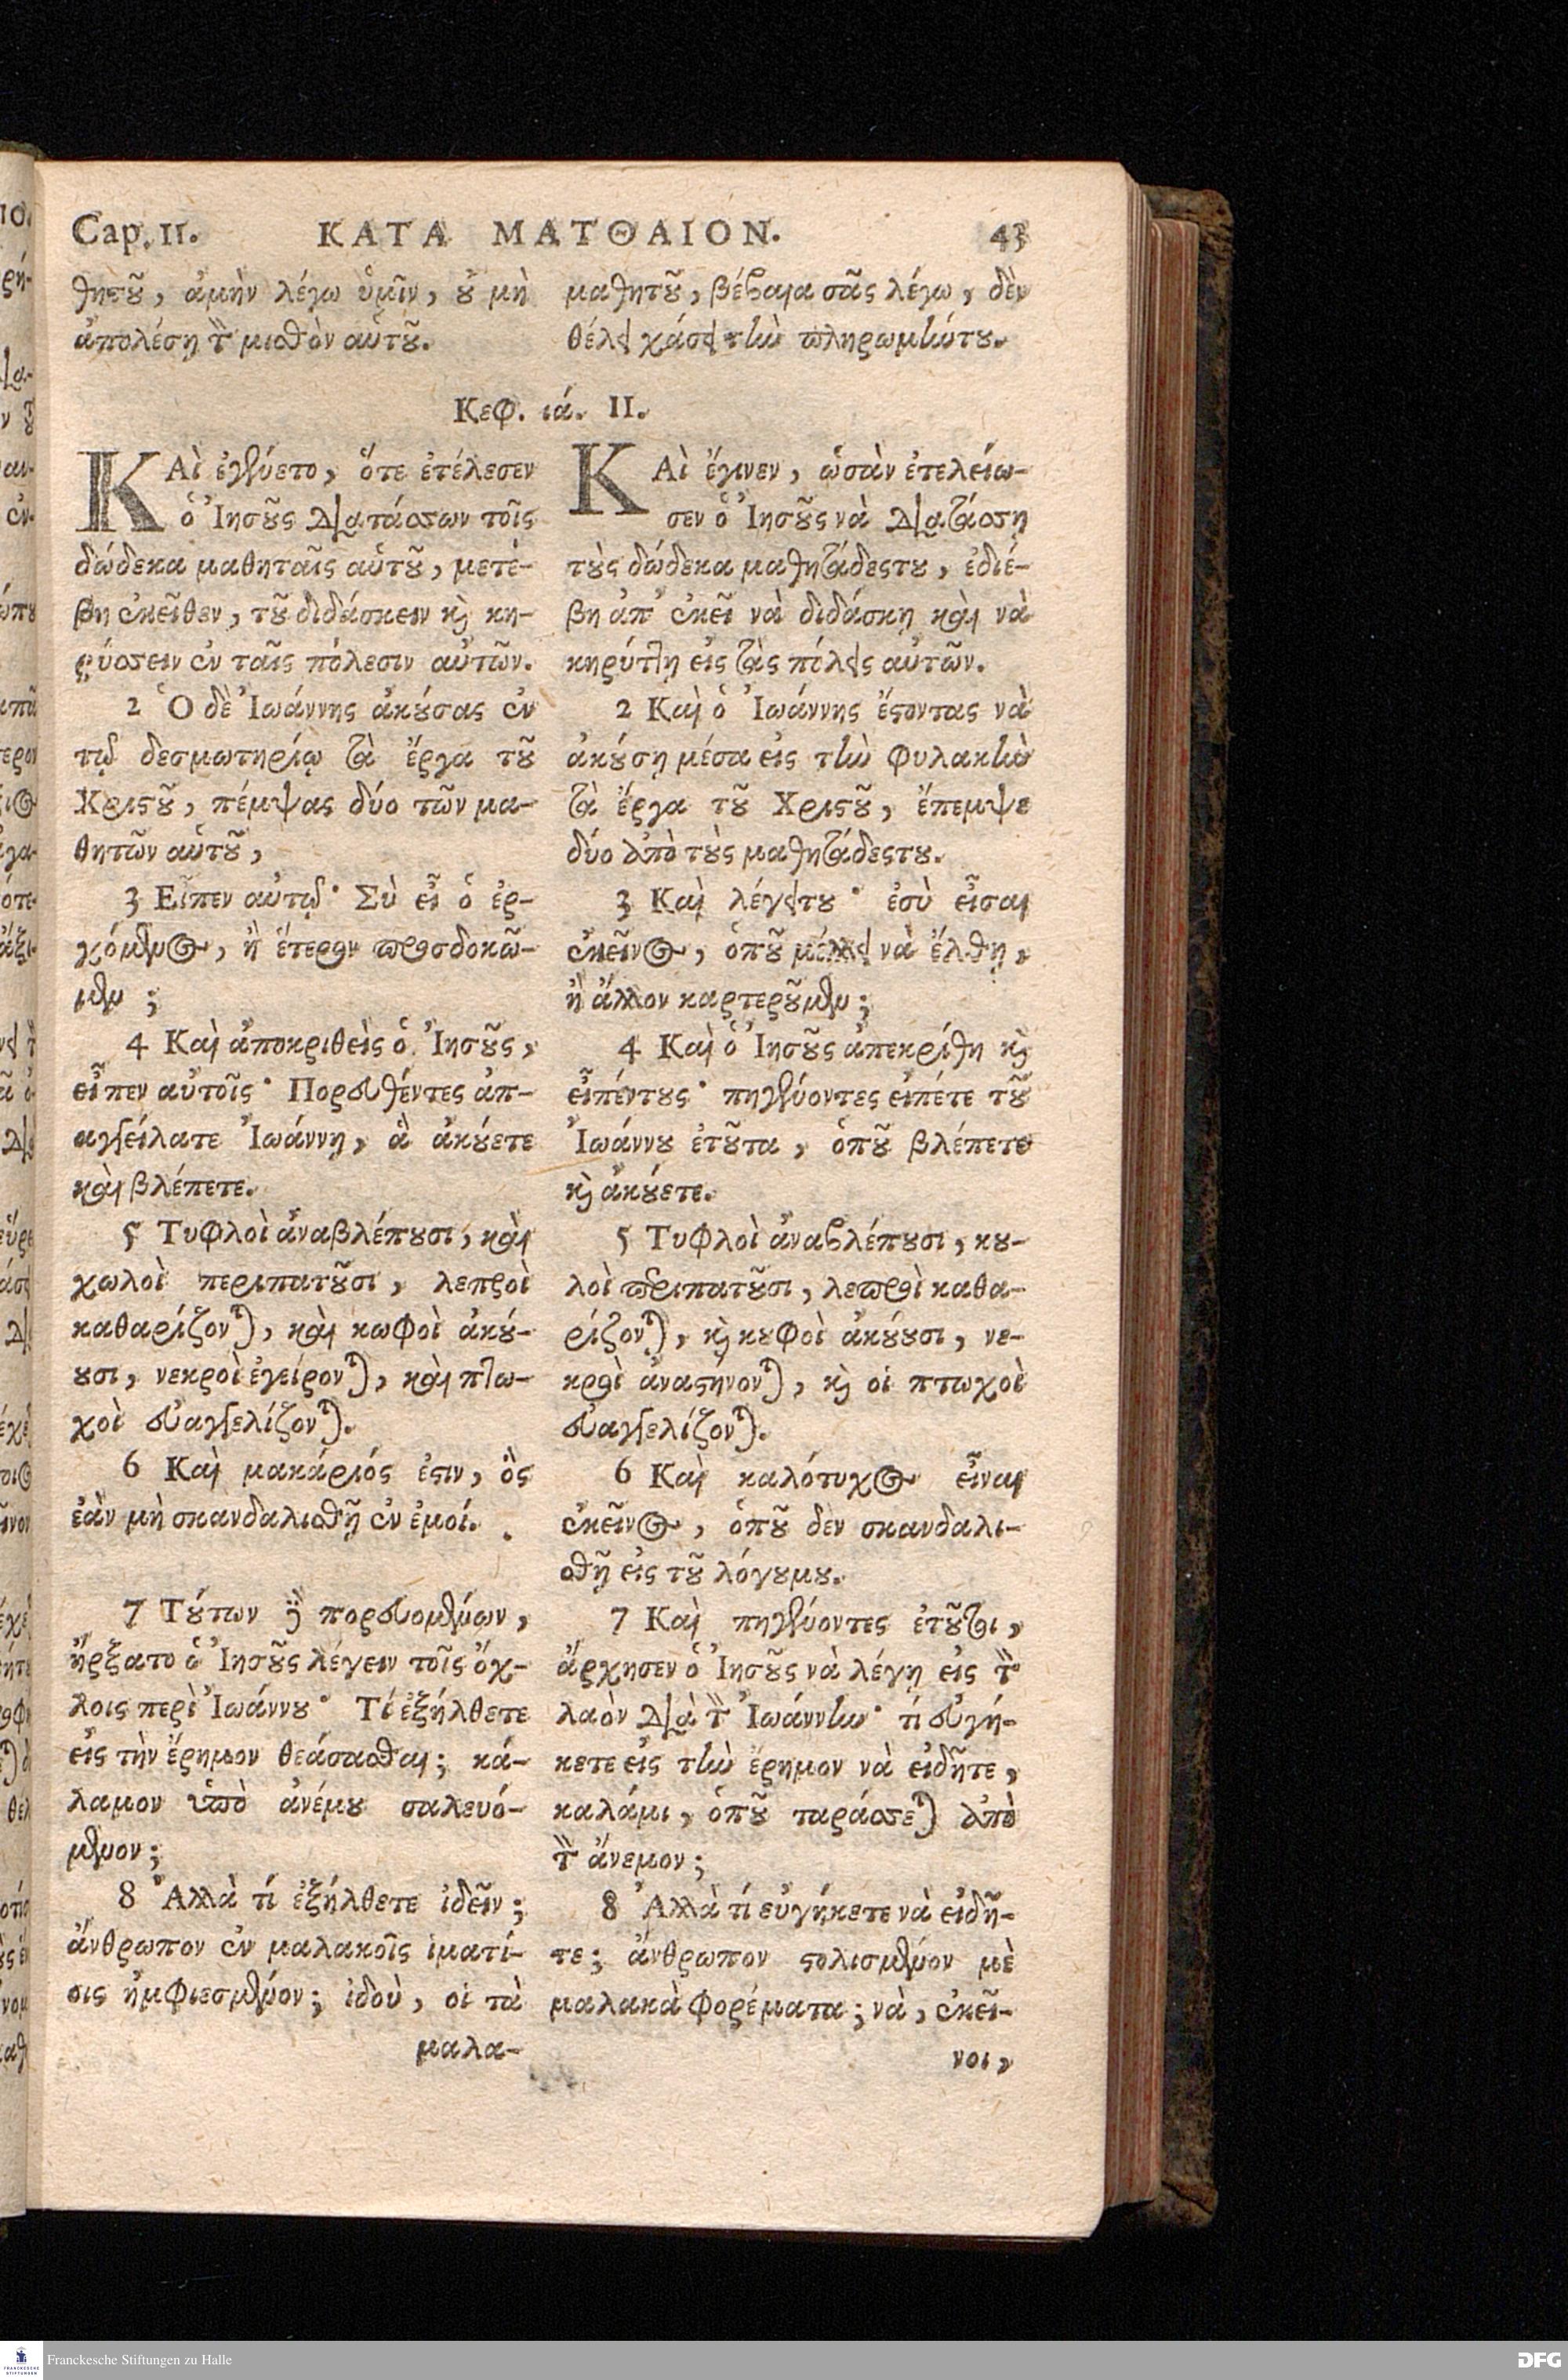 Cap. 11. ΚΑΤΑ ΜΑΤΘΑΙΟΝ. 43
θητοῦ, ἀμὴν λέγω ὑμῖν, οὐ μὴ
ἀπολέσῃ τὸν μισθὸν αὑτοῦ.
μαθητοῦ, βέβαια σᾶς λέγω, δὲν
θέλει χάσει τὴν πληρωμήντου.
Κεφ. ιά. 11.
ΚΑὶ ἐγένετο, ὅτε ἐτέλεσεν
ὁ Ἰησοῦς διατάσσων τοῖς
δώδεκα μαθηταῖς αὑτοῦ, μετέ-
βη ἐκεῖθεν, τοῦ διδάσκειν καὶ κη-
ρύσσειν ἐν ταῖς πόλεσιν αὐτῶν.
2 Ὁ δὲ Ἰωάννης ἀκούσας ἐν
τῷ δεσμωτηρίῳ τὰ ἔργα τοῦ
Χριστοῦ, πέμψας δύο τῶν μα-
θητῶν αὑτοῦ,
3 Εἶπεν αὐτῷ· Σὺ εἶ ὁ ἐρ-
χόμενος, ἢ ἕτερον προσδοκῶ-
μεν;
4 Καὶ ἀποκριθεὶς ὁ Ἰησοῦς,
εἶπεν αὐτοῖς· Πορευθέντες ἀπ-
αγγείλατε Ἰωάννῃ, ἃ ἀκούετε
καὶ βλέπετε.
5 Τυφλοὶ ἀναβλέπουσι, καὶ
χωλοὶ περιπατοῦσι, λεπροὶ
καθαρίζονται, καὶ κωφοὶ ἀκού-
ουσι, νεκροὶ ἐγείρονται, καὶ πτω-
χοὶ εὐαγγελίζονται.
6 Καὶ μακάριός ἐστιν, ὃς
ἐὰν μὴ σκανδαλισθῇ ἐν ἐμοί.
7 Τούτων δὲ πορευομένων,
ἤρξατο ὁ Ἰησοῦς λέγειν τοῖς ὄχ-
λοις περὶ Ἰωάννου· Τί ἐξήλθετε
εἰς τὴν ἔρημον θεάσασθαι; κά-
λαμον ὑπὸ ἀνέμου σαλευό-
μενον;
8 Ἀλλὰ τί ἐξήλθετε ἰδεῖν;
ἄνθρωπον ἐν μαλακοῖς ἱματί-
οις ἠμφιεσμένον; ἰδοὺ, οἱ τὰ
μαλα-
ΚΑὶ ἔγινεν, ὡσὰν ἐτελείω-
σεν ὁ Ἰησοῦς νὰ διατάσσῃ
τοὺς δώδεκα μαθητάδεςτου, ἐδιέ-
βη ἀπ' ἐκεῖ νὰ διδάσκῃ καὶ νὰ
κηρύττῃ εἰς τὰς πόλεις αὐτῶν.
2 Καὶ ὁ Ἰωάννης ἔστοντας νὰ
ἀκούσῃ μέσα εἰς τὴν φυλακὴν
τὰ ἔργα τοῦ Χριστοῦ, ἔπεμψε
δύο ἀπὸ τοὺς μαθητάδεςτου.
3 Καὶ λέγειτου· ἐσὺ εἶσαι
ἐκεῖνος, ὁποῦ μέλλει νὰ ἔλθῃ,
ἢ ἄλλον καρτεροῦμεν;
4 Καὶ ὁ Ἰησοῦς ἀπεκρίθη καὶ
εἶπέντους· πηγένοντες εἰπέτε τοῦ
Ἰωάννου ἐτοῦτα, ὁποῦ βλέπετε
καὶ ἀκούετε.
5 Τυφλοὶ ἀναβλέπουσι, κου-
λοὶ περιπατοῦσι, λεπροὶ καθα-
ρίζονται, καὶ κουφοὶ ἀκούουσι, νε-
κροὶ ἀναστήνονται, καὶ οἱ πτωχοὶ
εὐαγγελίζονται.
6 Καὶ καλότυχος εἶναι
ἐκεῖνος, ὁποῦ δεν σκανδαλι-
σθῇ εἰς τοῦ λόγουμου.
7 Καὶ πηγένοντες ἐτοῦτοι,
ἄρχησεν ὁ Ἰησοῦς νὰ λέγῃ εἰς τὸν
λαὸν διὰ τὸν Ἰωάννην· τί εὐγή-
κετε εἰς τὴν ἔρημον νὰ εἰδῆτε,
καλάμι, ὁποῦ ταράσσεται ἀπὸ
τὸν ἄνεμον;
8 Ἀλλὰ τί εὐγήκετε νὰ εἰδῆ-
τε; ἄνθρωπον στολισμένον μὲ
μαλακὰ φορέματα; νὰ, ἐκεῖ-
νοι,
Franckesche Stiftungen zu Halle
DFG